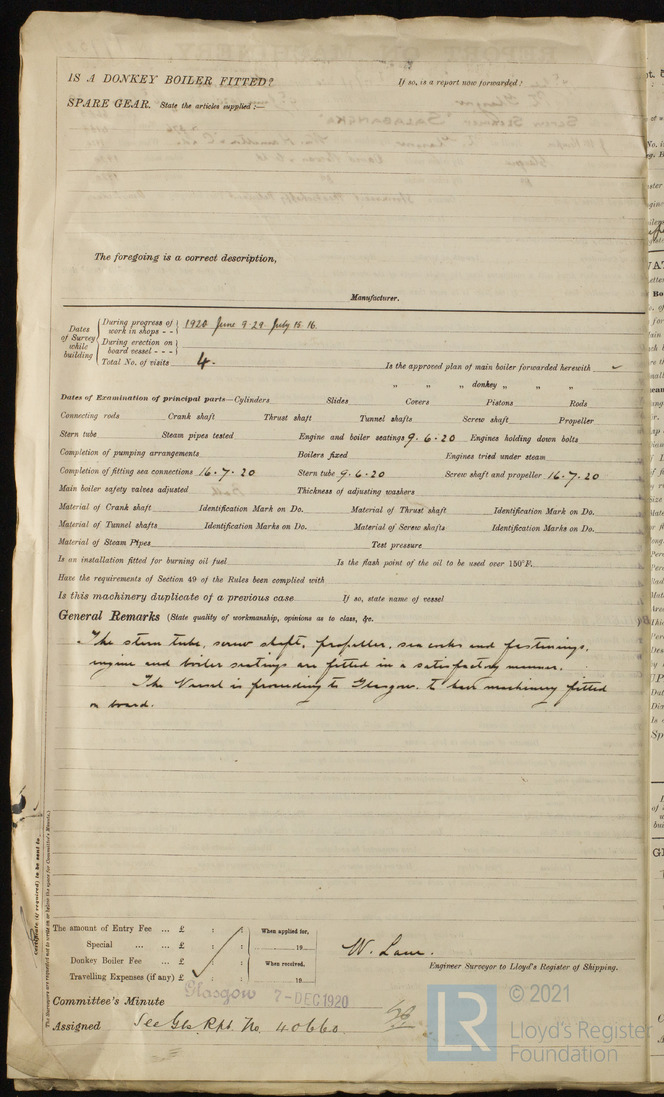 IS A DONKEY BOILER FITTED? If so, is a report now forwarded?
SPARE GEAR. State the articles supplied:—
The foregoing is a correct description,
Manufacturer.
Dates of Survey while building
During progress of work in shops - - 1920 June 9. 29. July 15. 16.
During erection on board vessel - - -
Total No. of visits 4.
Is the approved plan of main boiler forwarded herewith
" " " donkey " " "
Dates of Examination of principal parts—Cylinders Slides Covers Pistons Rods
Connecting rods Crank shaft Thrust shaft Tunnel shafts Screw shaft Propeller
Stern tube Steam pipes tested Engine and boiler seatings 9.6.20 Engines holding down bolts
Completion of pumping arrangements Boilers fixed Engines tried under steam
Completion of fitting sea connections 16.7.20 Stern tube 9.6.20 Screw shaft and propeller 16.7.20
Main boiler safety valves adjusted Thickness of adjusting washers
Material of Crank shaft Identification Mark on Do. Material of Thrust shaft Identification Mark on Do.
Material of Tunnel shafts Identification Marks on Do. Material of Screw shafts Identification Marks on Do.
Material of Steam Pipes Test pressure
Is an installation fitted for burning oil fuel Is the flash point of the oil to be used over 150°F.
Have the requirements of Section 49 of the Rules been complied with
Is this machinery duplicate of a previous case If so, state name of vessel
General Remarks (State quality of workmanship, opinions as to class, &c.
The stern tube, screw shaft, propeller, sea cocks and fastenings,
engine and boiler seatings are fitted in a satisfactory manner.
The Vessel is proceeding to Glasgow. to have machinery fitted
on board.
Certificate (if required) to be sent to
The Surveyors are requested not to write on or below the space for Committee's Minute.)
The amount of Entry Fee ... £ : : When applied for,
Special ... ... £ : : 19
Donkey Boiler Fee ... £ : : When received,
Travelling Expenses (if any) £ : : 19
W. Lam.
Engineer Surveyor to Lloyd's Register of Shipping.
Committee's Minute Glasgow 7-DEC 1920
Assigned See Gls. Rpt. No. 40660
LR © 2021
Lloyd's Register
Foundation